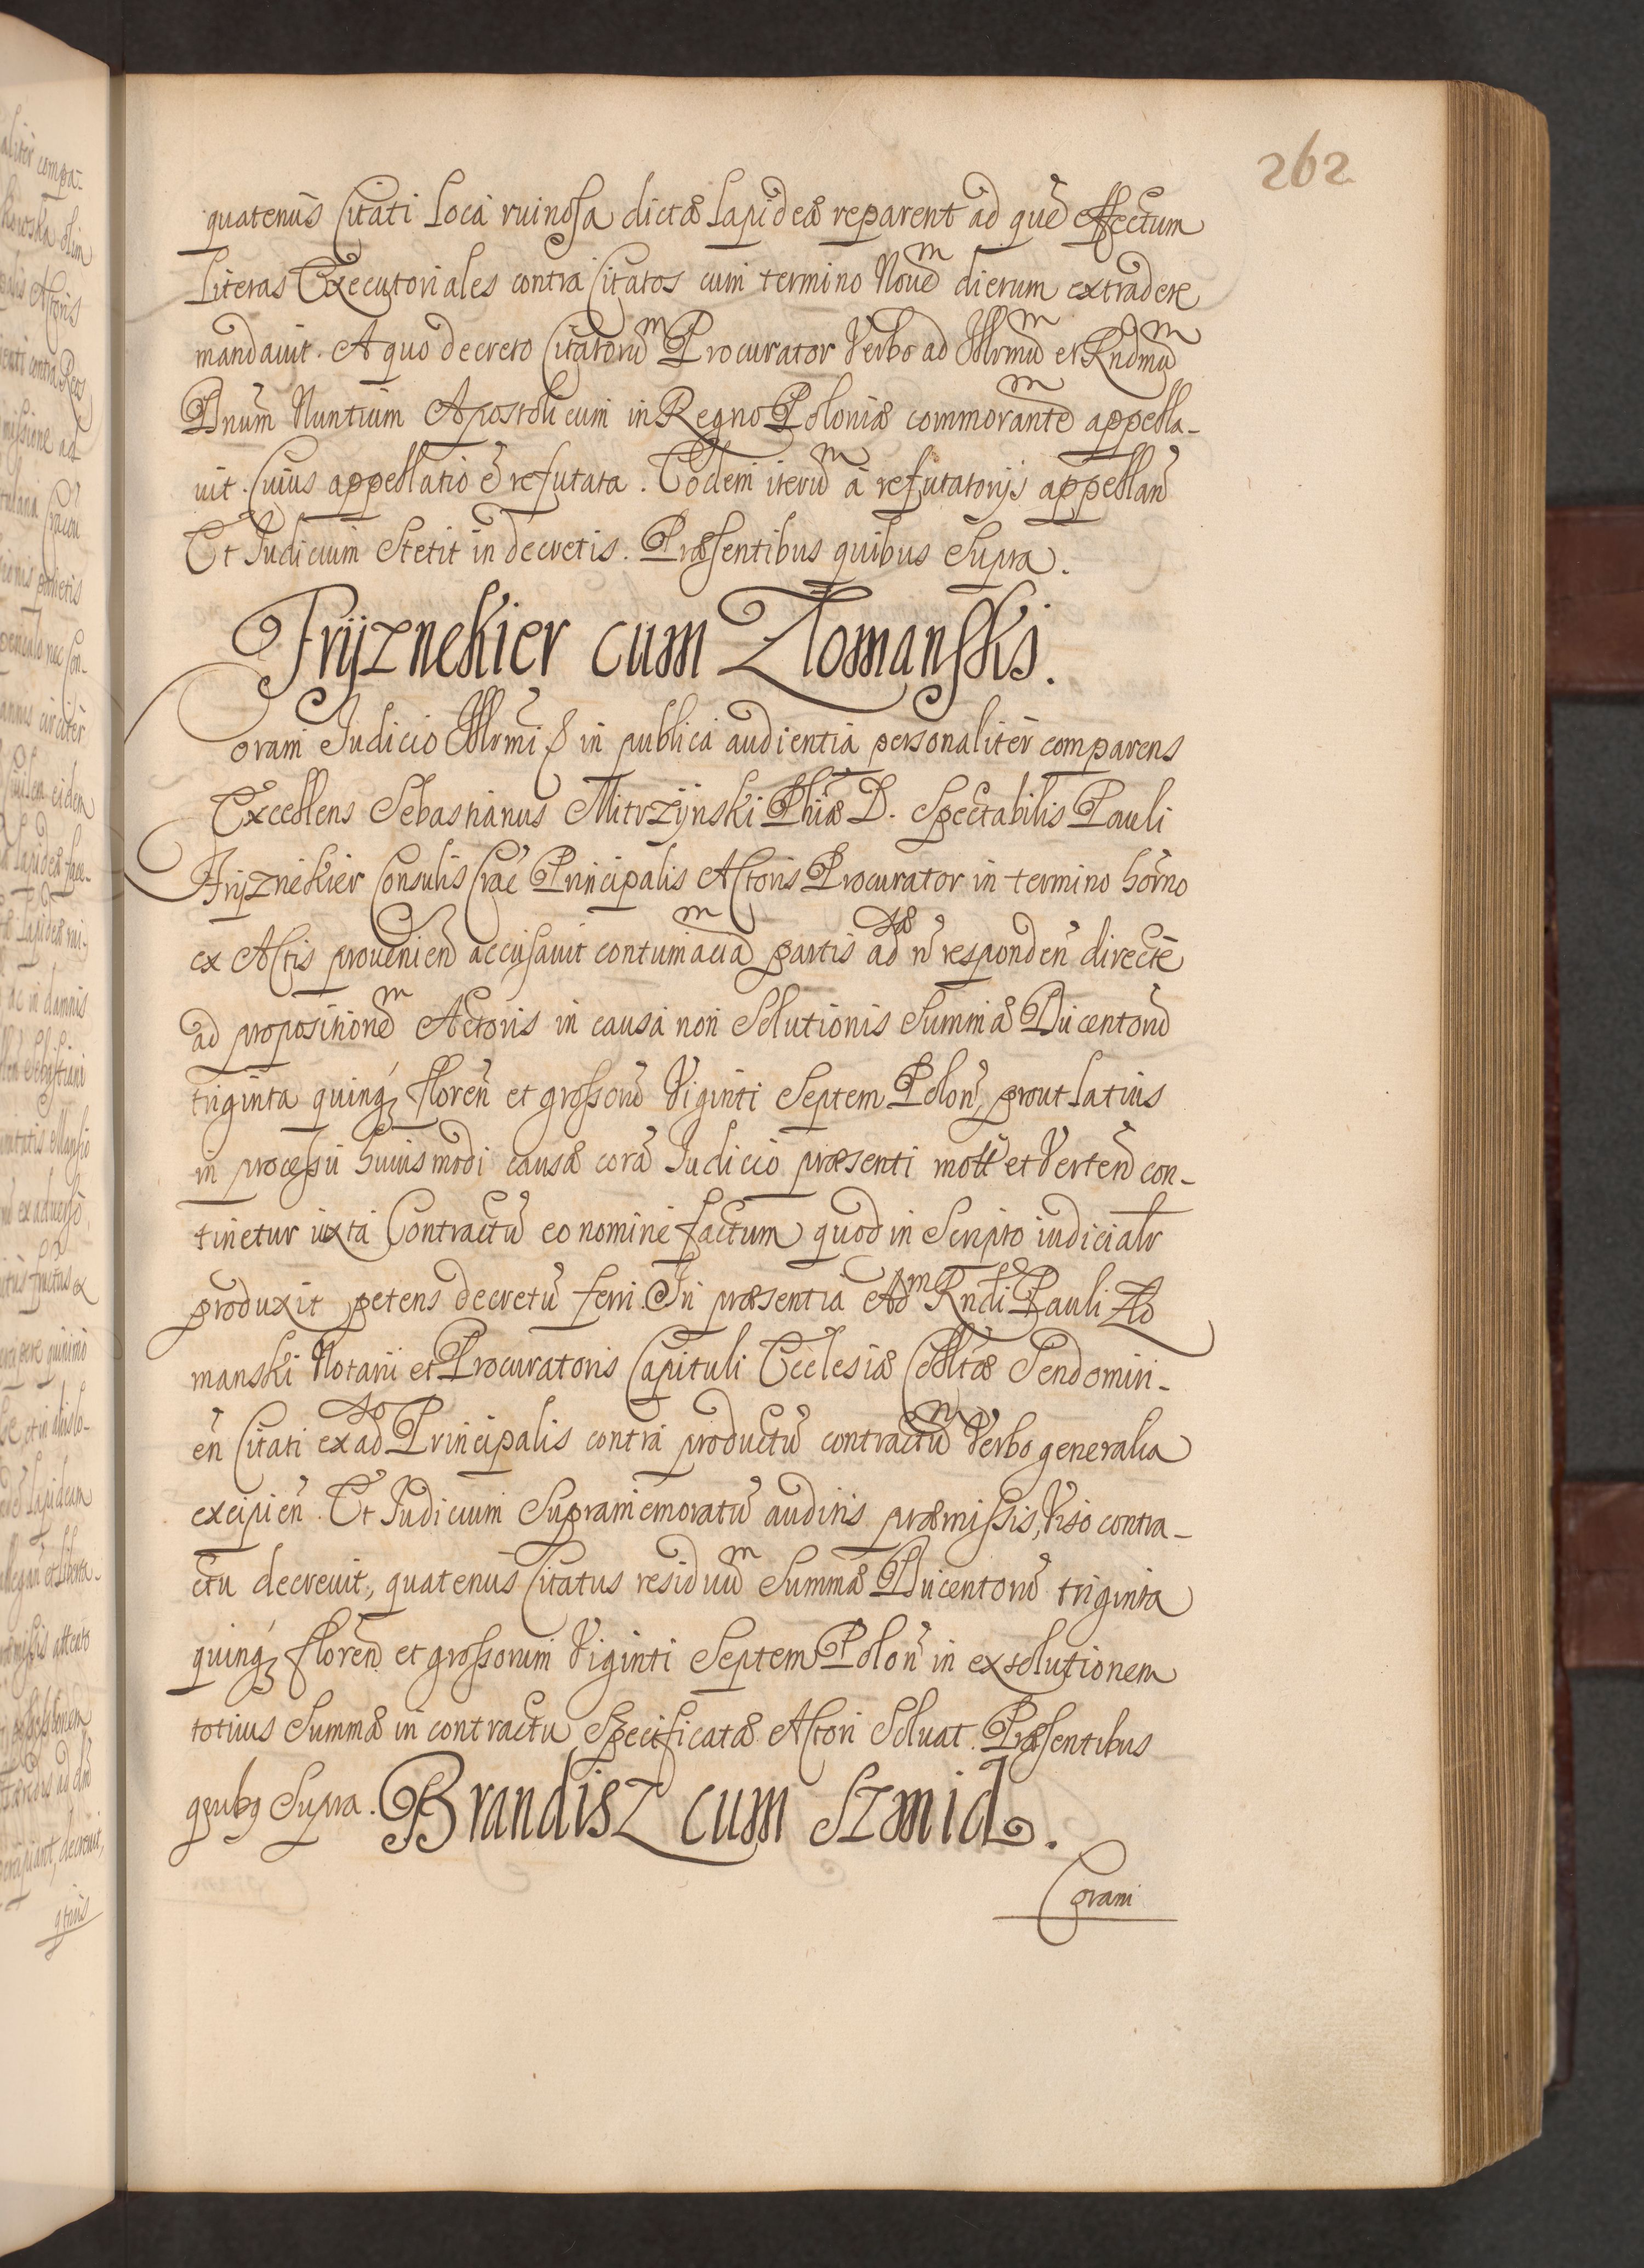 262
quatenus Citati Loca ruinosa dictæ Lapideæ reparent ad quē effectum
Literas Executoriales contra Citatos cum termino Nouem dierum extradere
mandauit. A quo decreto Citatorum Procurator Verbo ad Illrmum et Rndmum
Dnum Nuntium Apostolicum in Regno Poloniæ commorantem appella-
uit. Cuius appellatio ē refutata. Eodem iterum a refutatorijs appellan̄
Et Judicium Stetit in decretis. Præsentibus quibus Supra.
Fryznekier cum Złomanski.
Coram Judicio Illrmi & in publica audientia personaliter comparens
Excellens Sebastianus Mitrzÿnski Phiæ D. Spectabilis Pauli
Fryznekier Consulis Crac̄ Principalis Actoris Procurator in termino horno
ex Actis prouenien̄ accusauit contumaciam partis adtæ n̄ responden̄ directe
ad propositionem Actoris in causa non Solutionis Summæ Ducentorū
triginta quinq₃ floren̄ et grossorū Viginti Septem Polon̄, prout latius
in processu huiusmodi causæ corā Judicio præsenti mot̄ et Verten̄ con-
tinetur iuxta Contractū eo nomine factum quod in Scripto iudicialr
produxit petens decretū ferri. In præsentia Adm Rndi Pauli Zło
manski Notarii et Procuratoris Capituli Ecclesiæ Colltæ Sendomiri-
en̄ Citati ex adto Principalis contra productū contractum Verbo generalia
excipien̄. Et Judicium Supramemoratū auditis præmissis, Viso contra-
ctu decreuit, quatenus Citatus residuum Summæ Ducentorū triginta
quinq₃ floren̄ et grossorum Viginti Septem Polon̄ in exsolutionem
totius Summæ in contractu Specificatæ Actori Soluat. Præsentibus
quibꝯ Supra. Brandisz cum Szmid.
Coram